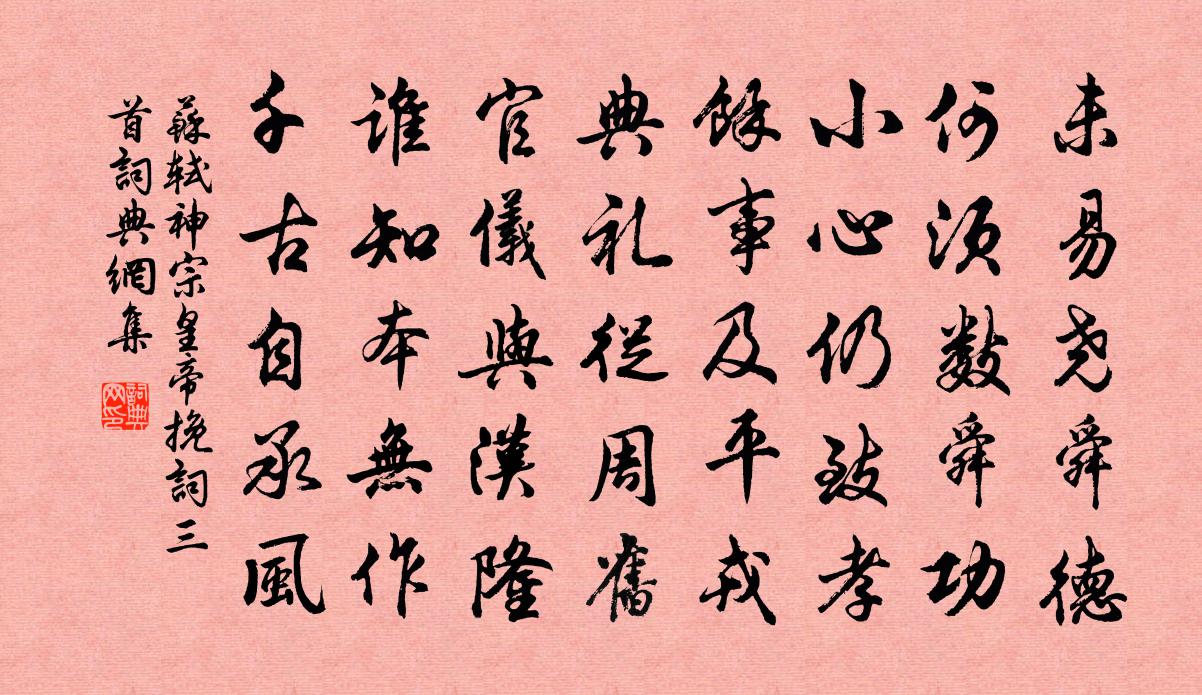 未易尧舜德
何須數舜功
小心仍致孝
餘事及平戎
典礼從周舊
官儀與漢隆
誰知本無作
千古自承風
蘇軾神宗皇帝挽詞三
首詞典網集
詞典
网印